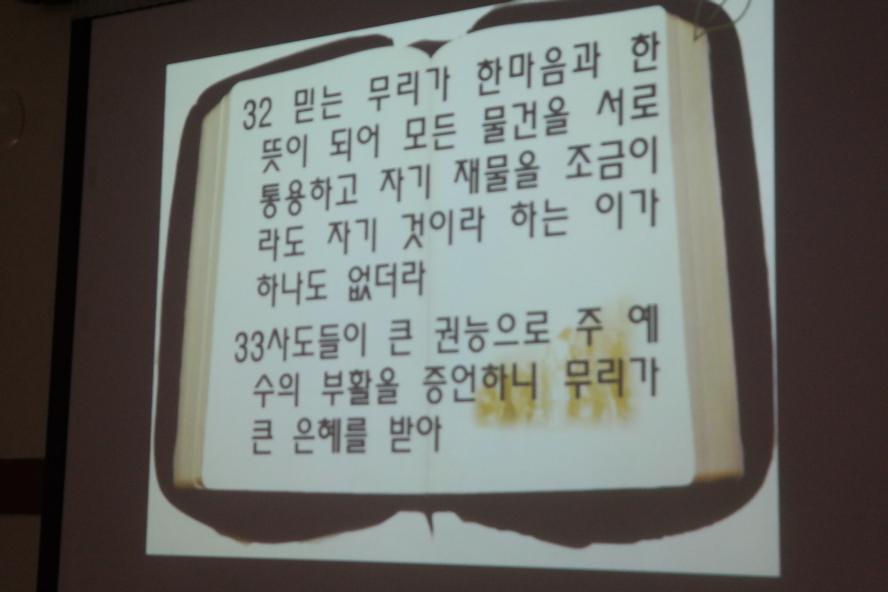 32 믿는 무리가 한마음과 한
뜻이 되어 모든 물건을 서로
통용하고 자기 재물을 조금이
라도 자기 것이라 하는 이가
하나도 없더라
33사도들이 큰 권능으로 주 예
수의 부활을 증언하니 무리가
큰 은혜를 받아